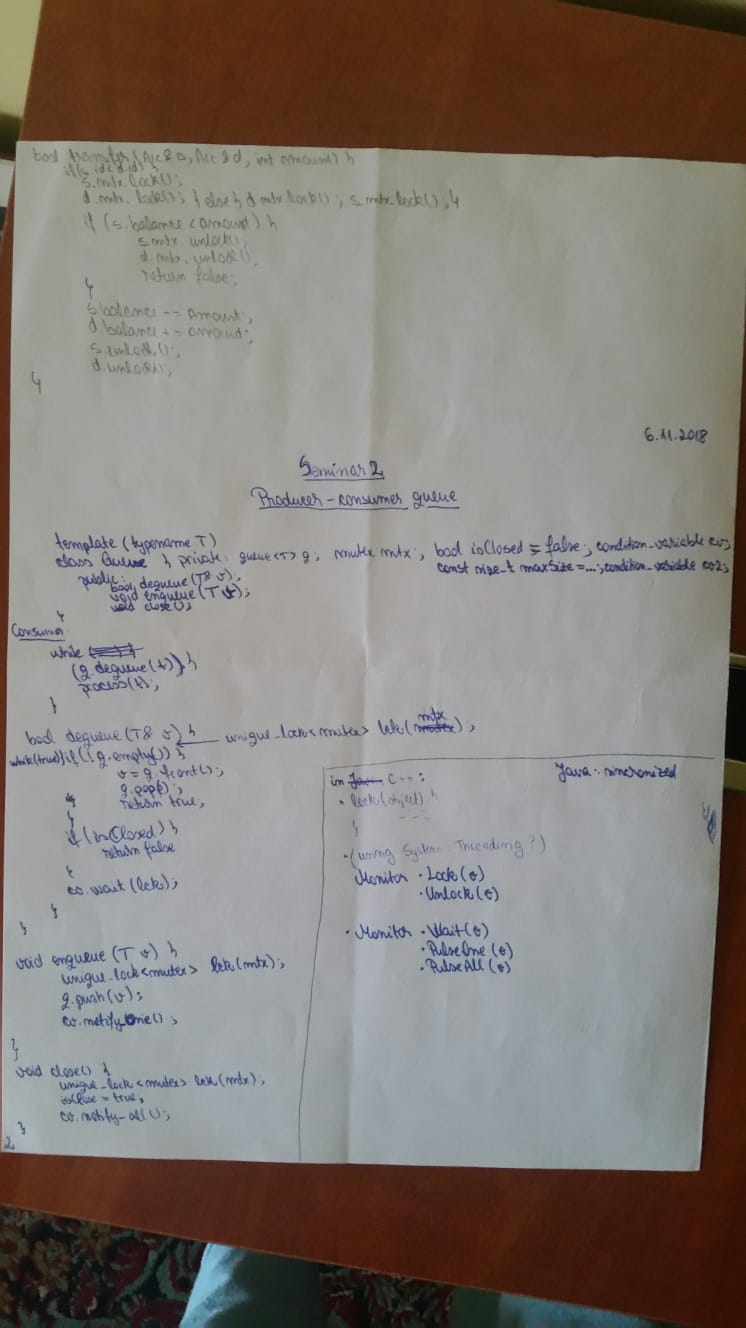 bool transfer (Acc & s, Acc & d, int amount) {
if (s.id < d.id) {
s.mtx.lock();
d.mtx.lock(); } else { d.mtx.lock(); s.mtx.lock(); }
if (s.balance < amount) {
s.mtx.unlock();
d.mtx.unlock();
return false;
}
s.balance -= amount;
d.balance += amount;
s.unlock();
d.unlock();
}
6.11.2018
Seminar 2
Producer-consumer queue
template (typename T)
class Queue { private: queue<T> q; mutex mtx; bool isClosed = false; condition_variable cv;
const size_t maxSize = ...; condition_variable cv2;
public:
bool dequeue (T& v);
void enqueue (T v);
void close();
}
Consumer:
while
(q.dequeue(t)) {
process(t);
}
bool dequeue (T& v) { unique_lock<mutex> lck(mtx);
while(true) if (!q.empty()) {
v = q.front();
q.pop();
return true;
}
if (isClosed) {
return false
}
cv.wait(lck);
}
}
void enqueue (T v) {
unique_lock<mutex> lck(mtx);
q.push(v);
cv.notify_one();
}
void close() {
unique_lock<mutex> lck(mtx);
isClose = true;
cv.notify_all();
}
2
in C++:
• lock(object) {
---
}
• (using System.Threading?)
Monitor • Lock(o)
• Unlock(o)
• Monitor • Wait(o)
• PulseOne(o)
• PulseAll(o)
Java: sincronized